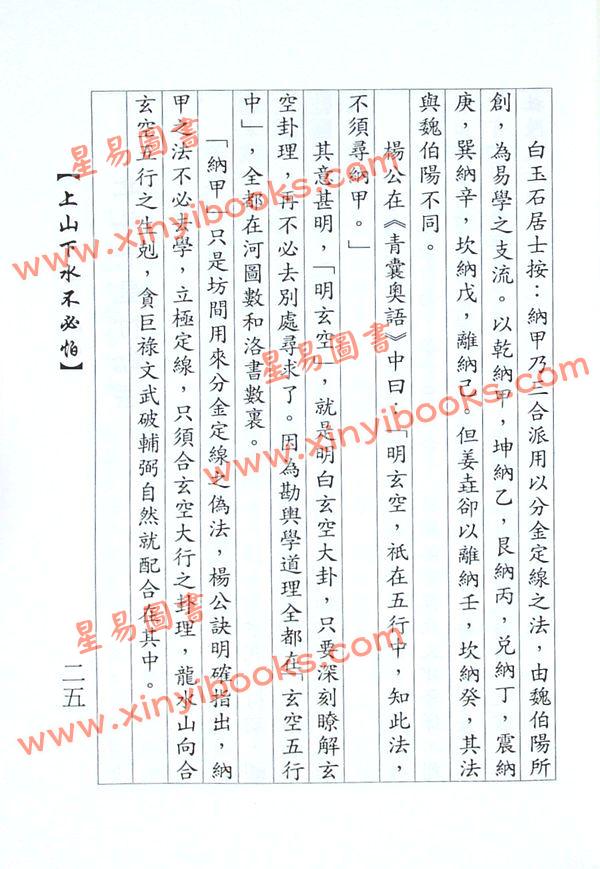 白玉石居士按：納甲乃三合派用以分金定線之法，由魏伯陽所
創，為易學之支流。以乾納甲，坤納乙，艮納丙，兌納丁，震納
庚，巽納辛，坎納戊，離納己。但姜垚卻以離納壬，坎納癸，其法
與魏伯陽不同。
楊公在《青囊奧語》中曰：「明玄空，祇在五行中，知此法，
不須尋納甲。」
其意甚明，「明玄空」，就是明白玄空大卦，只要深刻瞭解玄
空卦理，再不必去別處尋求了。因為勘輿學道理全都在「玄空五行
中」，全都在河圖數和洛書數裏。
「納甲」只是坊間用來分金定線之偽法，楊公訣明確指出，納
甲之法不必去學，立極定線，只須合玄空大行之卦理，龍水山向合
玄空五行之生剋，貪巨祿文武破輔弼自然就配合在其中。
【上山下水不必怕】
二五
星易圖書
www.xinyibooks.com
星易圖書
www.xinyibooks.com
星易圖書
www.xinyibooks.com